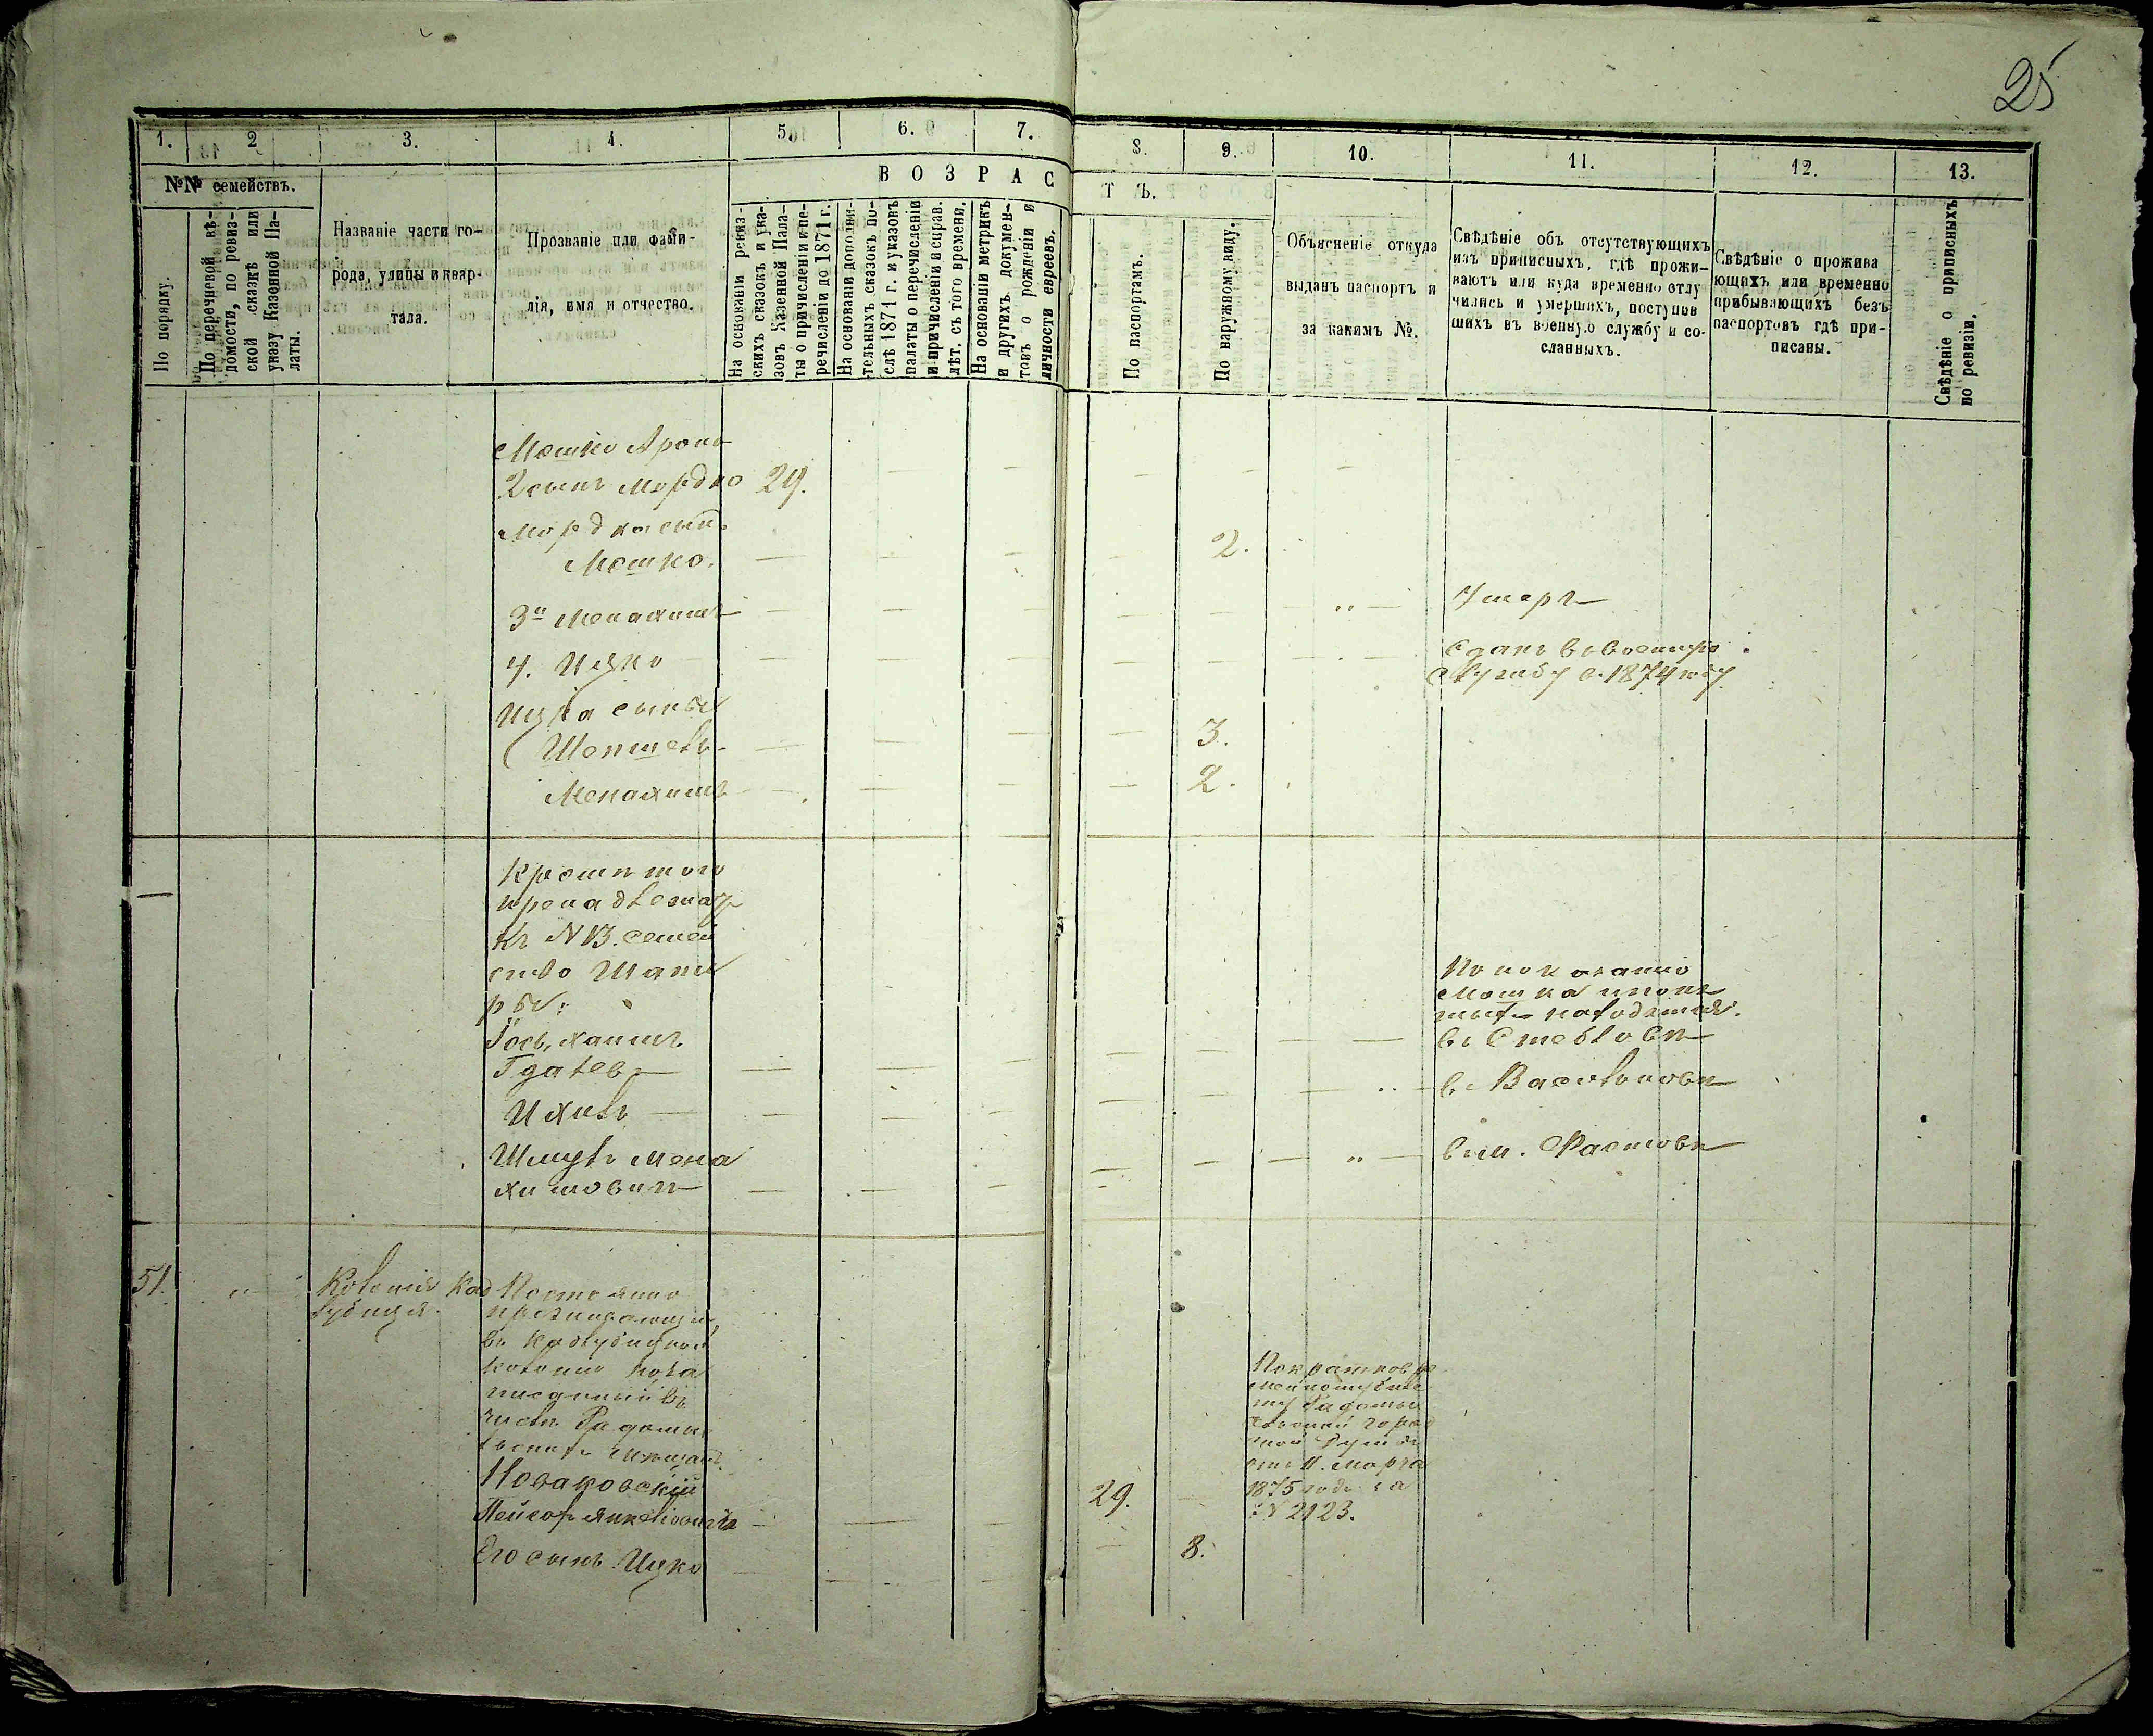 25
1. 2 3. 4. 5 6. 7. 8. 9. 10. 11. 12. 13.
ВОЗРАСТЪ.
№№ семействъ.
По порядку.
По перечневой вѣ-
домости, по ревиз-
ской сказкѣ или
указу Казенной Па-
латы.
Названіе части го-
рода, улицы и квар-
тала.
Прозваніе или фами-
лія, имя и отчество.
На основаніи ревиз-
скихъ сказокъ и ука-
зовъ Казенной Пала-
ты о причисленіи и пе-
речисленіи до 1871 г.
На основаніи дополни-
тельныхъ сказокъ по-
слѣ 1871 г. и указовъ
палаты о перечисленіи
и причисленіи и справ.
лѣт. съ того времени.
На основаніи метрикъ
и другихъ докумен-
товъ о рожденіи и
личности евреевъ.
По паспортамъ.
По наружному виду.
Объясненіе откуда
выданъ паспортъ и
за какимъ №.
Свѣдѣніе объ отсутствующихъ
изъ приписныхъ, гдѣ прожи-
ваютъ или куда временно отлу
чились и умершихъ, поступив
шихъ въ военную службу и со-
сланныхъ.
Свѣдѣніе о прожива
ющихъ или временно
прибывающихъ безъ
паспортовъ гдѣ при-
писаны.
Свѣдѣніе о приписныхъ
по ревизіи.
Мошко Арона
2 сынъ Мордко 29.
Мордка сын.
Мошко. 2.
3й Менахимъ Умеръ
4. Ицко Сданъ въ военную
службу с. 1874 году
Ицка сынья
Шепшель 3.
Менахимъ 2.
Кромѣ того
къ N 13. семей
ство Шапи
ры:
Іось, Хаимъ въ Стеблови
Гдалевъ в. Василькови
Ихиль
Шмуль Мена в м. Фастови
химовичъ
51. Колонія Кад
лубиця.
Постоянно
проживающій
въ Кадлубицкой
колоніи
числѣ Радомы
Новаковскій
Лейзоръ Янкеліовичъ 29.
Его сынъ Ицко 8.
отъ 11. Марта
1875 года за
N 2123.